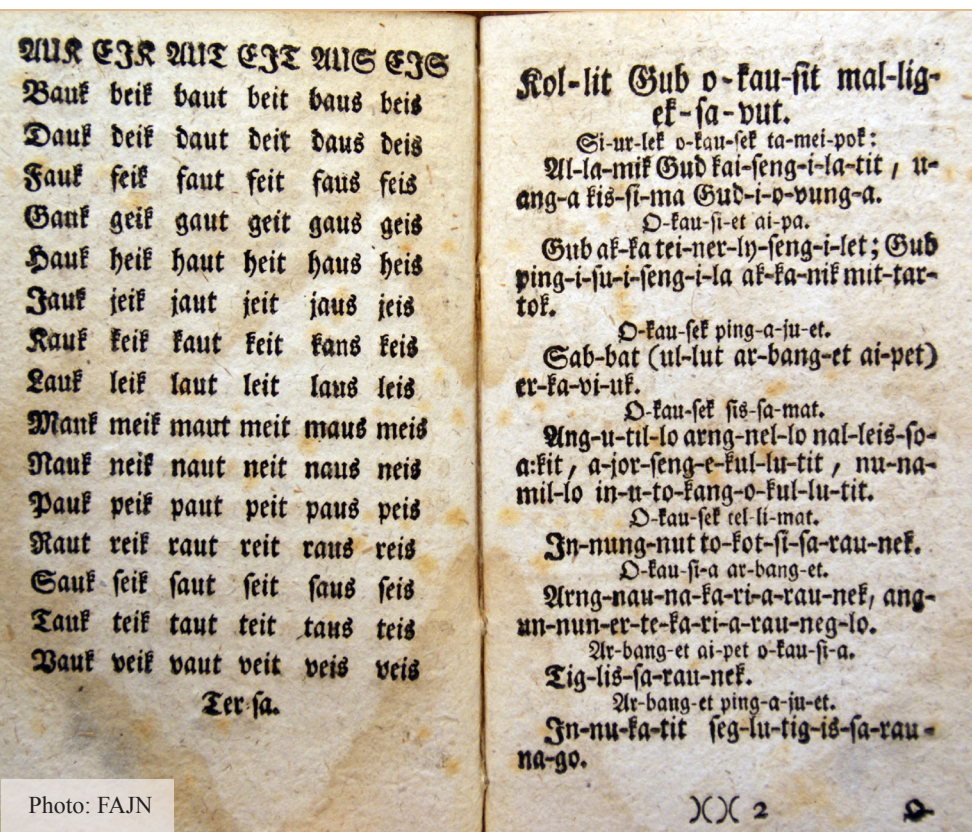 AUK EIK AUT EIT AUS EIS
Bauk beik baut beit baus beis
Dauk deik daut deit daus deis
Fauk feik faut feit faus feis
Gauk geik gaut geit gaus geis
Hauk heik haut heit haus heis
Jauk jeik jaut jeit jaus jeis
Kauk keik kaut keit kans keis
Lauk leik laut leit laus leis
Mauk meik maut meit maus meis
Nauk neik naut neit naus neis
Pauk peik paut peit paus peis
Raut reik raut reit raus reis
Sauk seik saut seit saus seis
Tauk teik taut teit taus teis
Vauk veik vaut veit veis veis
Ter-sa.
Photo: FAJN
Kol-lit Gub o-kau-sit mal-lig-
ek-sa-vut.
Si-ur-lek o-kau-sek ta-mei-pok:
Al-la-mik Gud kai-seng-i-la-tit, u-
ang-a kis-si-ma Gud-i-o-vung-a.
O-kau-si-et ai-pa.
Gub ak-ka tei-ner-ly-seng-i-let; Gub
ping-i-su-i-seng-i-la ak-ka-nik mit-tar-
tok.
O-kau-sek ping-a-ju-et.
Sab-bat (ul-lut ar-bang-et ai-pet)
er-ka-vi-uk.
O-kau-sek sis-sa-mat.
Ang-u-til-lo arng-nel-lo nal-leis-so-
a:kit, a-jor-seng-e-kul-lu-tit, nu-na-
mil-lo in-u-to-kang-o-kul-lu-tit.
O-kau-sek tel-li-mat.
In-nung-nut to-kot-si-sa-rau-nek.
O-kau-si-a ar-bang-et.
Arng-nau-na-ka-ri-a-rau-nek, ang-
un-nun-er-te-ka-ri-a-rau-neg-lo.
Ar-bang-et ai-pet o-kau-si-a.
Tig-lis-sa-rau-nek.
Ar-bang-et ping-a-ju-et.
In-nu-ka-tit seg-lu-tig-is-sa-rau-
na-go.
)( )( 2 O-